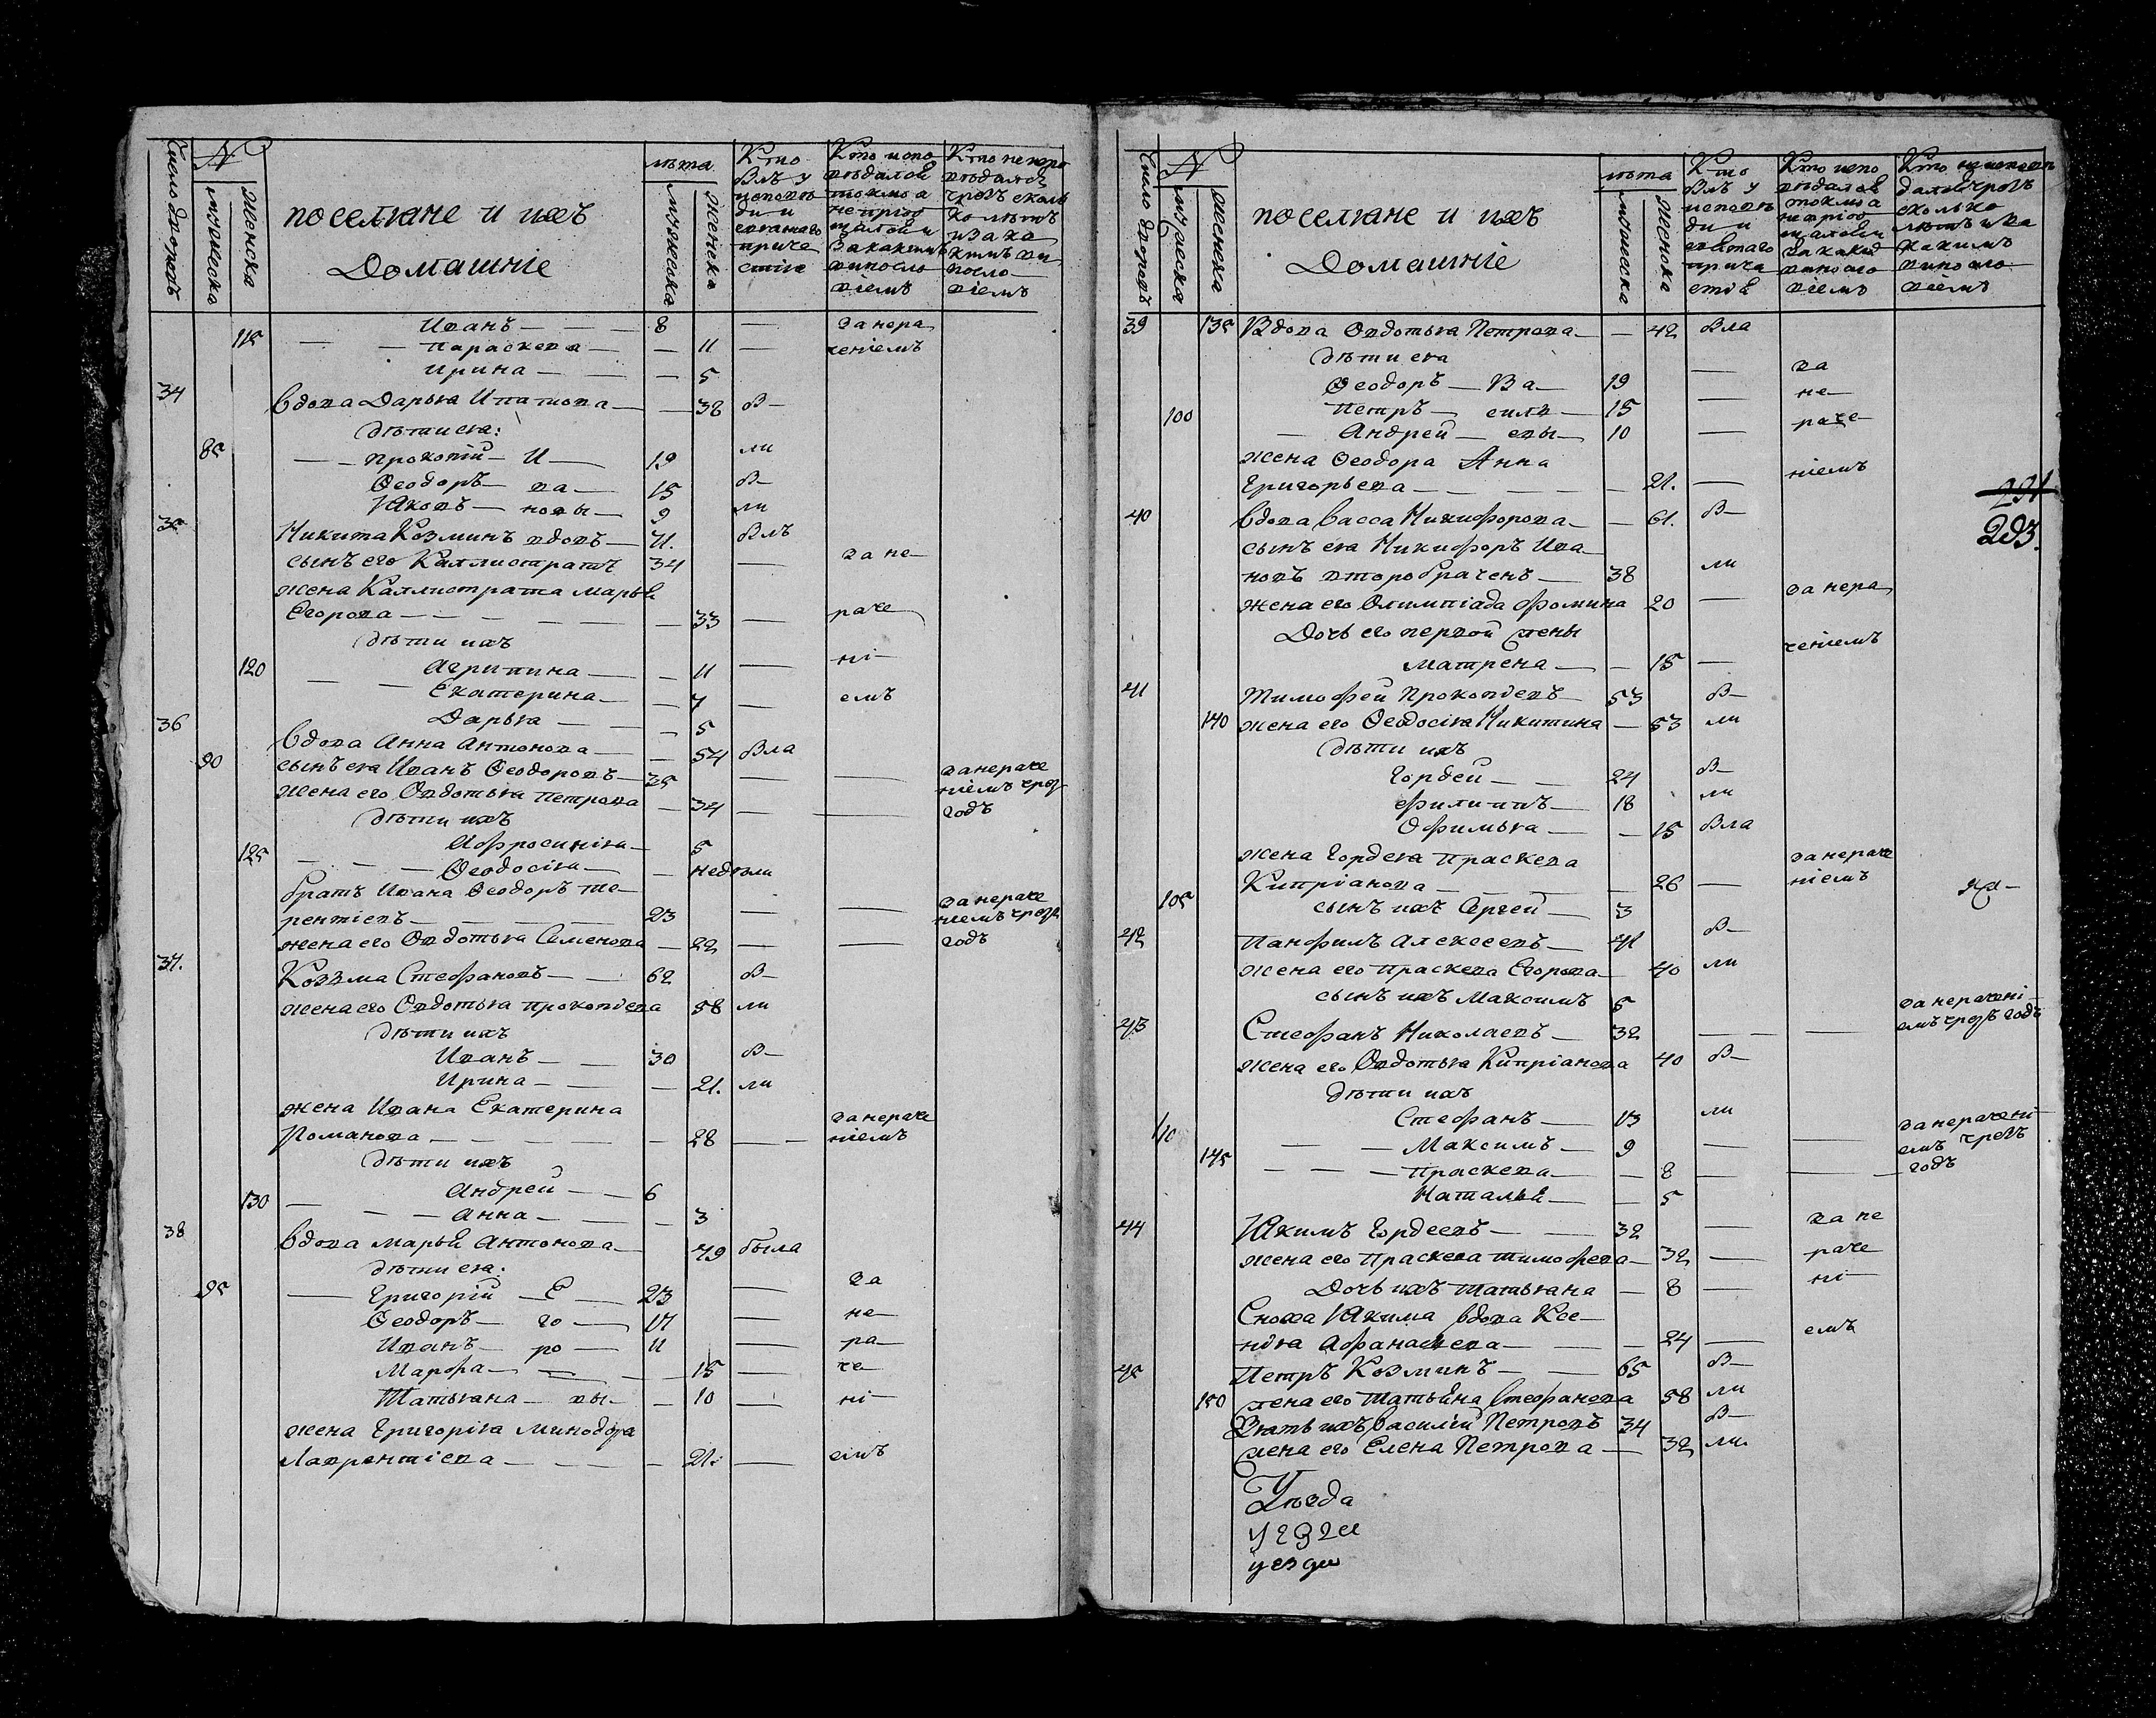 Число дворовъ
№
мужеска
женска
поселяне и ихъ
домашніе
лѣта
мужеска
женска
Кто
былъ у
исповѣ
ди и
святаго
прича
стія
Кто испо
вѣдался
токмо а
не прiоб
щался и
за какимъ
винословіемъ
Кто не испо
вѣдался
чрезъ сколь
ко лѣтъ
и за ка
кимъ ви
носло
віемъ
Иванъ — 8 — за нера
115 — Параскева — 11 — ченіемъ
Ирина — 5
34 Вдова Дарья Ипатова — 38 б—
дѣти ея:
85 — Прокопій — И — 19 ли
Ѳеодоръ — ва — 15 б—
Іяковъ — новы — 9 ли
35 Никита Козминъ вдовъ — 71. былъ
сынъ его Каллистратъ 34 — за не—
жена Каллистрата Марья
Егорова — 33 — раче
дѣти ихъ
120 Агрипина — 11 — ні—
Екатерина — 7 — емъ
Дарья — 5
36 Вдова Анна Антонова — 54 была
90 сынъ ея Иванъ Ѳеодоровъ — 35 — — за нераче
жена его Овдотья Петрова — 34 — — ніемъ чрез годъ
дѣти ихъ
Афросинія — 5
125 — Ѳеодосія — недѣли
братъ Ивана Ѳеодоръ Те—
рентіевъ — 23 — — за нераче
ніемъ чрезъ
жена его Овдотья Семенова — 22 — — годъ
37. Козма Стефановъ — 62 б—
жена его Овдотья Прокопіева 58 ли
дѣти ихъ
Иванъ — 30 б—
Ирина — 21. ли
жена Ивана Екатерина
Романова — 28 — за нераче
ніемъ
дѣти ихъ
Андрей — 6
130 — Анна — 3
38 Вдова Марья Антонова — 49 была
дѣти ея:
95 — Григорій — Е — 23 — за
Ѳеодоръ — го — 17 — не—
Иванъ — ро — 11 — ра—
Марфа — 15 — че—
Татьяна — вы — 10 — ні—
жена Григорія Минодора
Лаврентіева — 21. — емъ
Число дворовъ
№
мужеска
женска
поселяне и ихъ
домашніе
лѣта
мужеска
женска
Кто
былъ у
исповѣ
ди и
святаго
прича
стія
Кто испо
вѣдался
токмо а
не пріоб
щался и
за какимъ
винословіемъ
Кто не исповѣ
дался чрезъ
сколько
лѣтъ и за
какимъ
виносло
віемъ
39 135 Вдова Овдотья Петрова — 42 была
дѣти ея — за
Ѳеодоръ — Ва — 19 — не—
100 Петръ — силь — 15 — раче
— Андрей — евы — 10 —
жена Ѳеодора Анна
Григорьева — 21. — ніемъ
40 Вдова Васса Никифорова — 61. б—
сынъ ея Никифоръ Ива—
новъ второбраченъ — 38 ли
жена его Олимпіада Фомина 20 — за нера
Дочь его первой жены
Матрена — 15 — ченіемъ
41 Тимофей Прокопіевъ 53 б—
140 жена его Ѳеодосія Никитина — 53 ли
дѣти ихъ
Гордей — 24 б—
Филиппъ — 18 ли
Офимья — 15 была
жена Гордея Праскева
Кипріанова — 26 — за нераче
ніемъ
105 сынъ ихъ Сергей — 3
42 Панфилъ Алексеевъ — 41 б—
жена его Праскева Егорова — 40 ли
сынъ ихъ Максимъ 5
43 Стефанъ Николаевъ — 32 — — за нерачені—
емъ чрезъ годъ
жена его Овдотья Кипріанова 40 б—
дѣти ихъ
Стефанъ — 13 ли
110 — Максимъ — 9 — — за нерачені—
емъ чрезъ
145 — Праскева — 8 — — годъ
Наталья — 5
44 Іякимъ Гордеевъ — 32 — за не
жена его Праскева Тимофеева — 32 — раче
Дочь ихъ Татьяна — 8 — ні—
Сноха Іякима вдова Ксе—
нія Афанасьева — 24 — емъ
45 Петръ Козминъ — 65 б—
150 жена его Татьяна Стефанова 58 ли
Зять ихъ Василій Петровъ 34 б—
жена его Елена Петрова — 32 ли
291
203.
Уѣзда